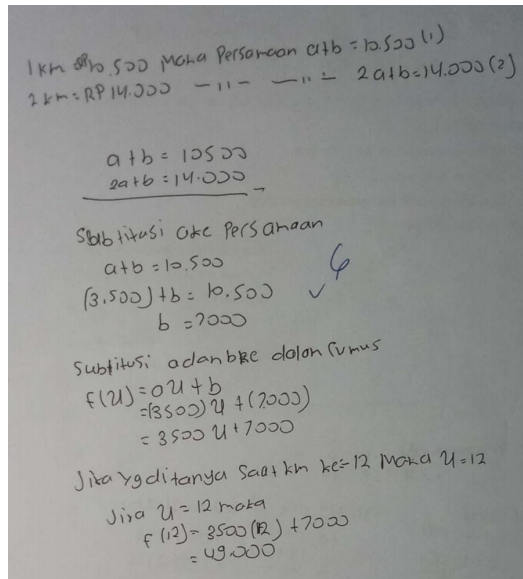 1 km = Rp 10.500 Maka Persamaan a+b = 10.500 (1)
2 km = RP 14.000 -11- -11- 2a+b = 14.000 (2)
a+b = 10500
2a+b = 14.000
-
Subtitusi a ke Persamaan
a+b = 10.500
(3.500)+b = 10.500
b = 7000
Subtitusi a dan b ke dalam rumus
f(U) = aU+b
= (3500)U + (7000)
= 3500 U + 7000
Jika yg ditanya saat km ke-12 Maka U = 12
Jika U = 12 maka
f (12) = 3500 (12) + 7000
= 49.000